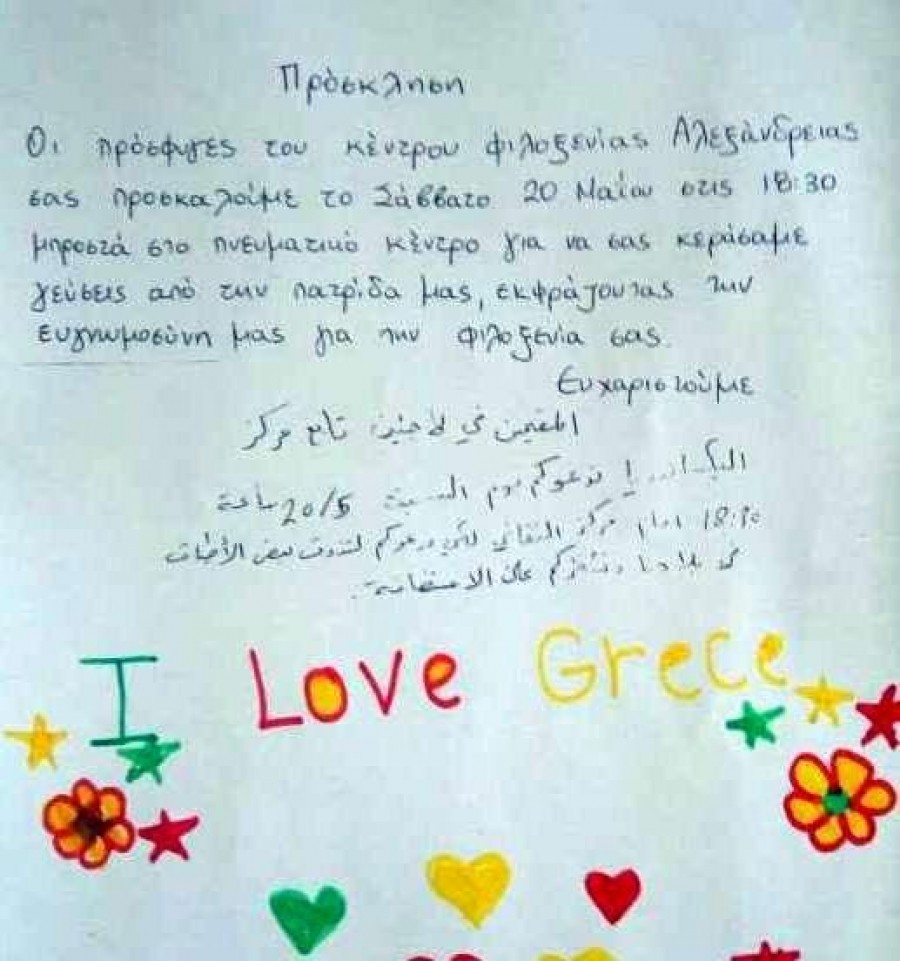 Πρόσκληση
Οι πρόσφυγες του κέντρου φιλοξενίας Αλεξάνδρειας
σας προσκαλούμε το Σάββατο 20 Μαίου στις 18:30
μπροστά στο πνευματικό κέντρο για να σας κεράσαμε
γεύσεις από την πατρίδα μας, εκφράζοντας την
ευγνωμοσύνη μας για την φιλοξενία σας.
Ευχαριστούμε
المقيمين في تابع مركز
ندعوكم يوم السبت 20/5 ساعة
18:30 امام مركز الثقافي لتذوق بعض
بلادنا على الاستضافة.
I Love Grece